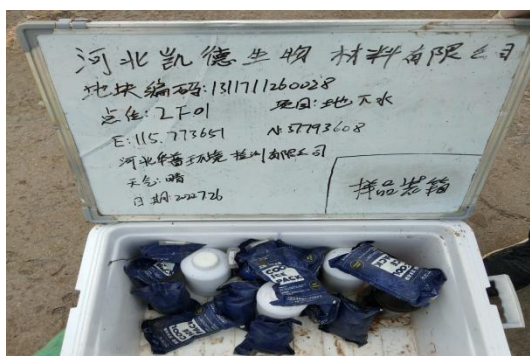 河北凯德生物材料有限公司
地块编码:1311711260028
点位:2F01 项目:地下水
E:115.773651 N:37.793608
河北华普环境检测有限公司
天气:晴
日期:2022.7.26
样品装箱
COOL
ICE
PACK
COOL
PACK